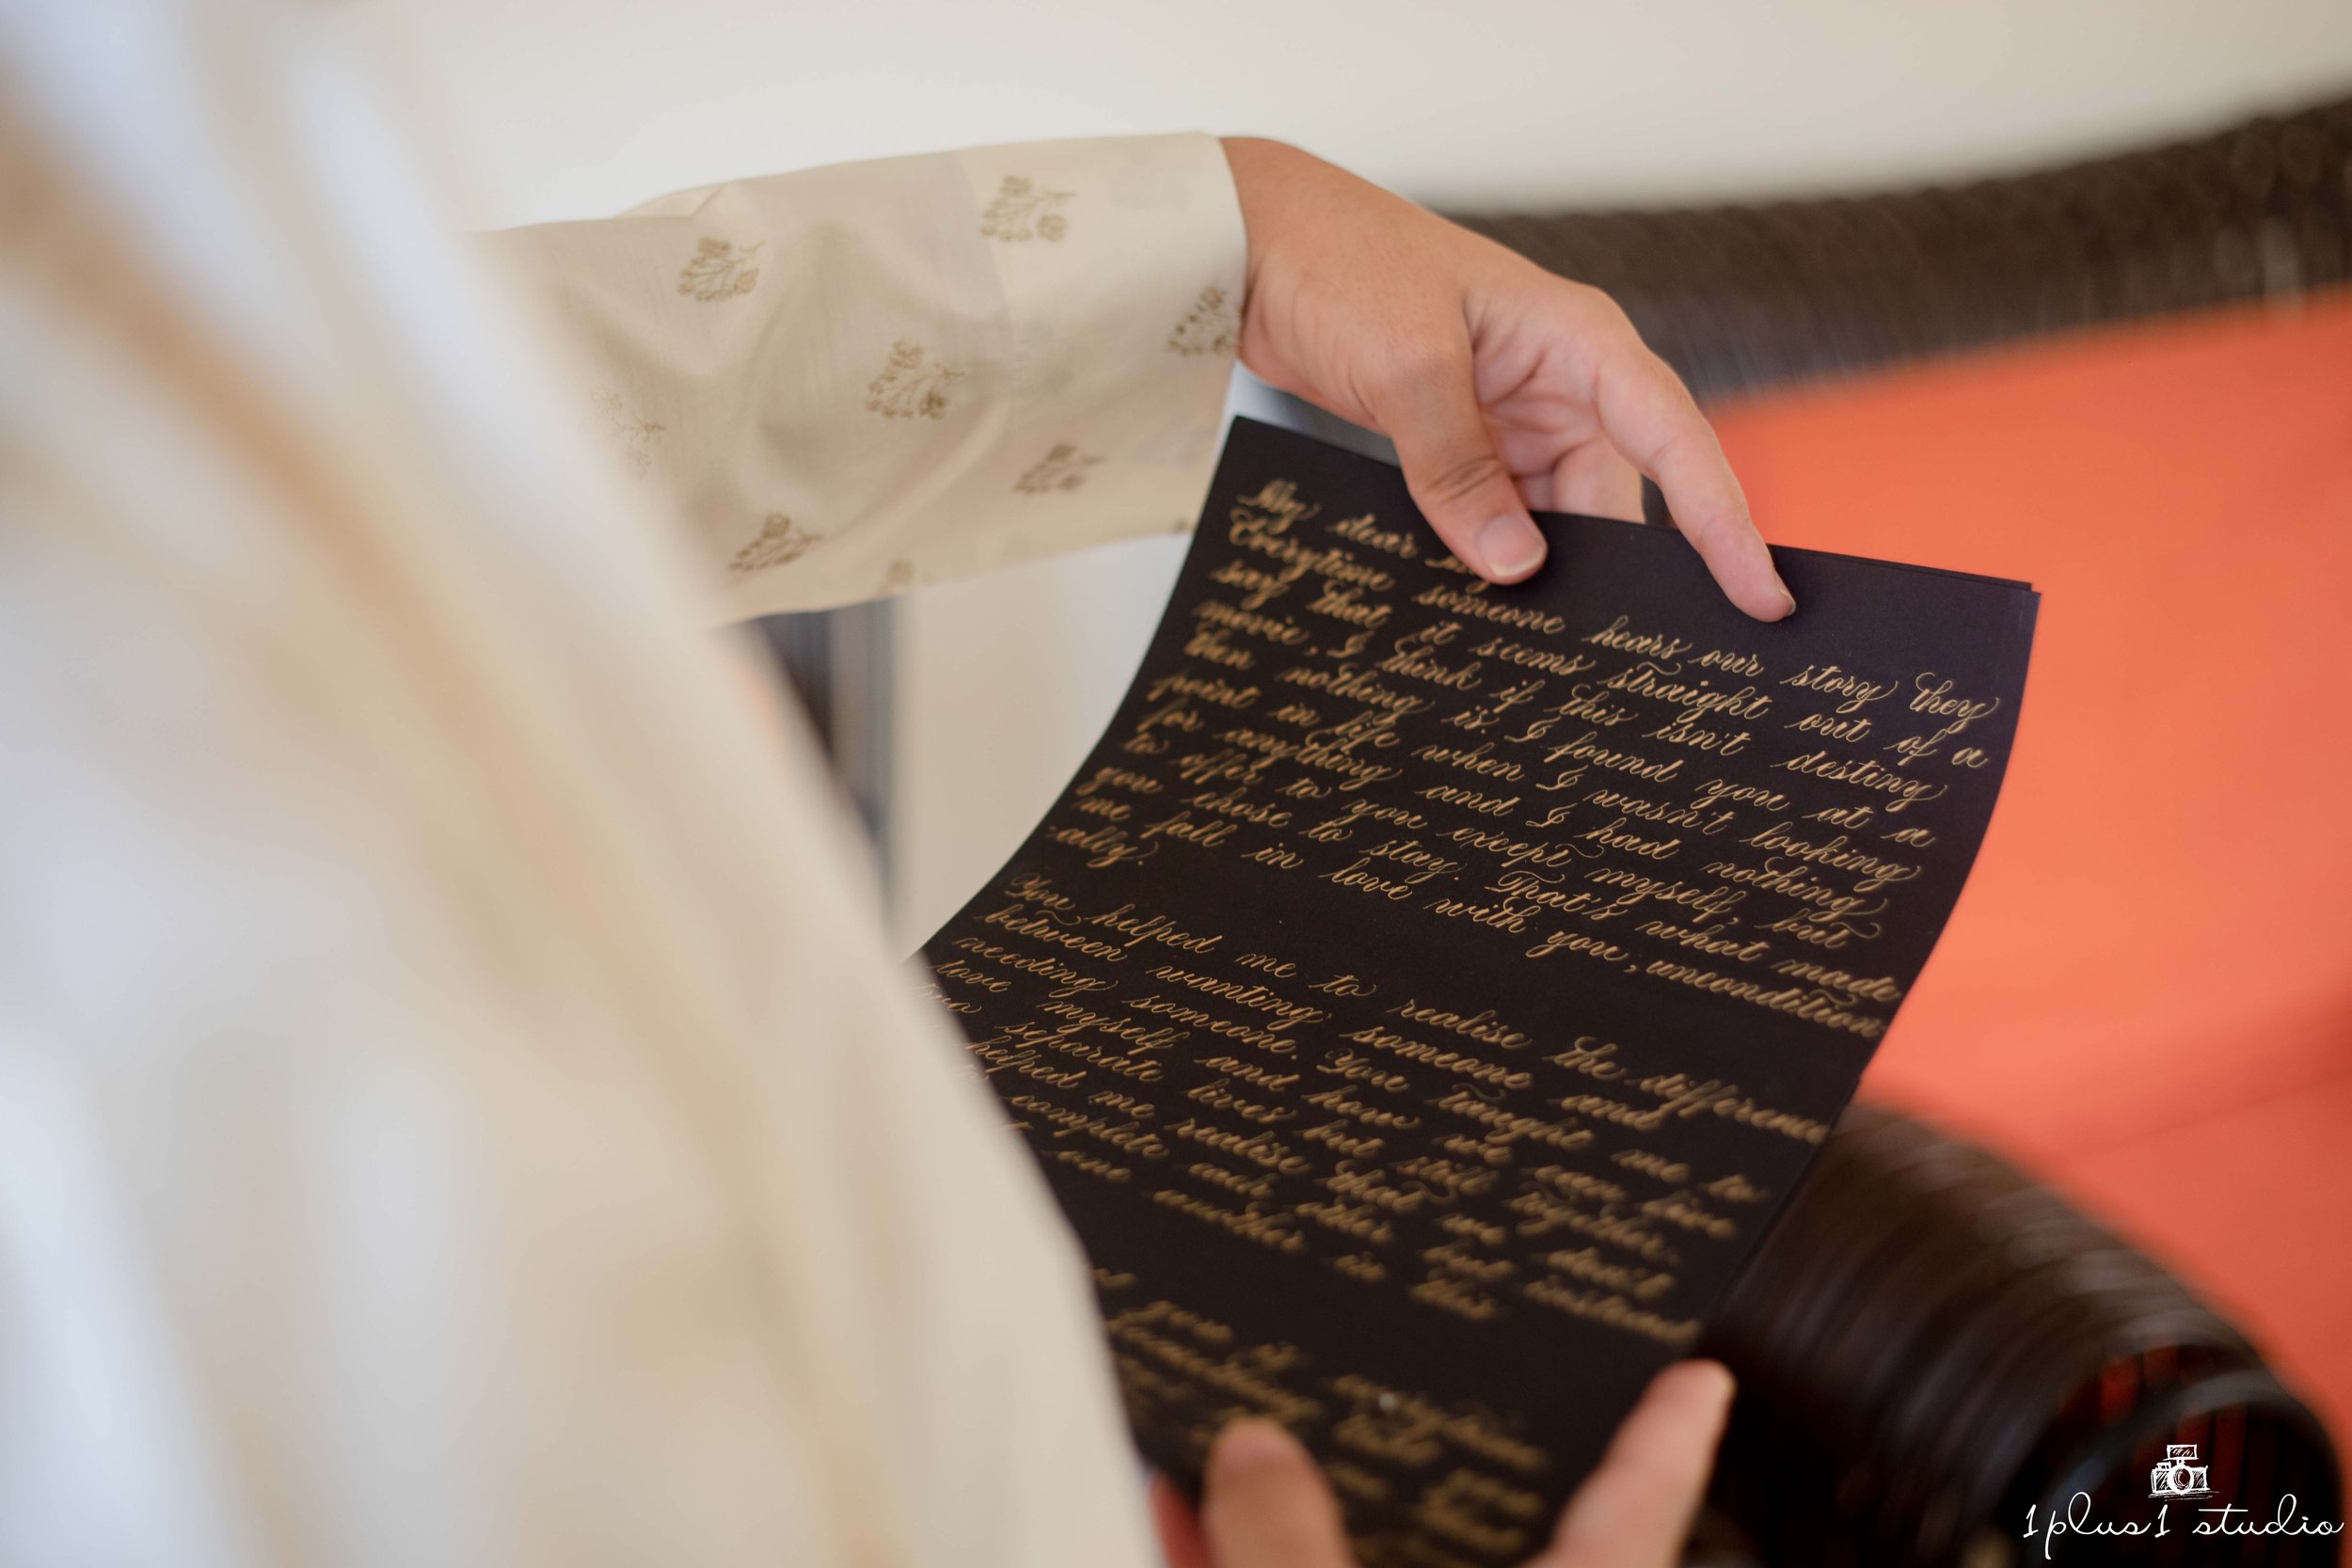 My dear
Everytime someone hears our story they
say that it seems straight out of a
movie, I think if this isn't destiny
then nothing is. I found you at a
point in life when I wasn't looking
for anything and I had nothing
to offer to you except myself, but
you chose to stay. That's what made
me fall in love with you, uncondition-
-ally.
You helped me to realise the difference
between wanting someone and
needing someone. You taught me to
love myself and how we can live
two separate lives but still together.
helped me realise that we don't
complete each other but instead
one another in this
you is everytime
something that you
1plus1 studio